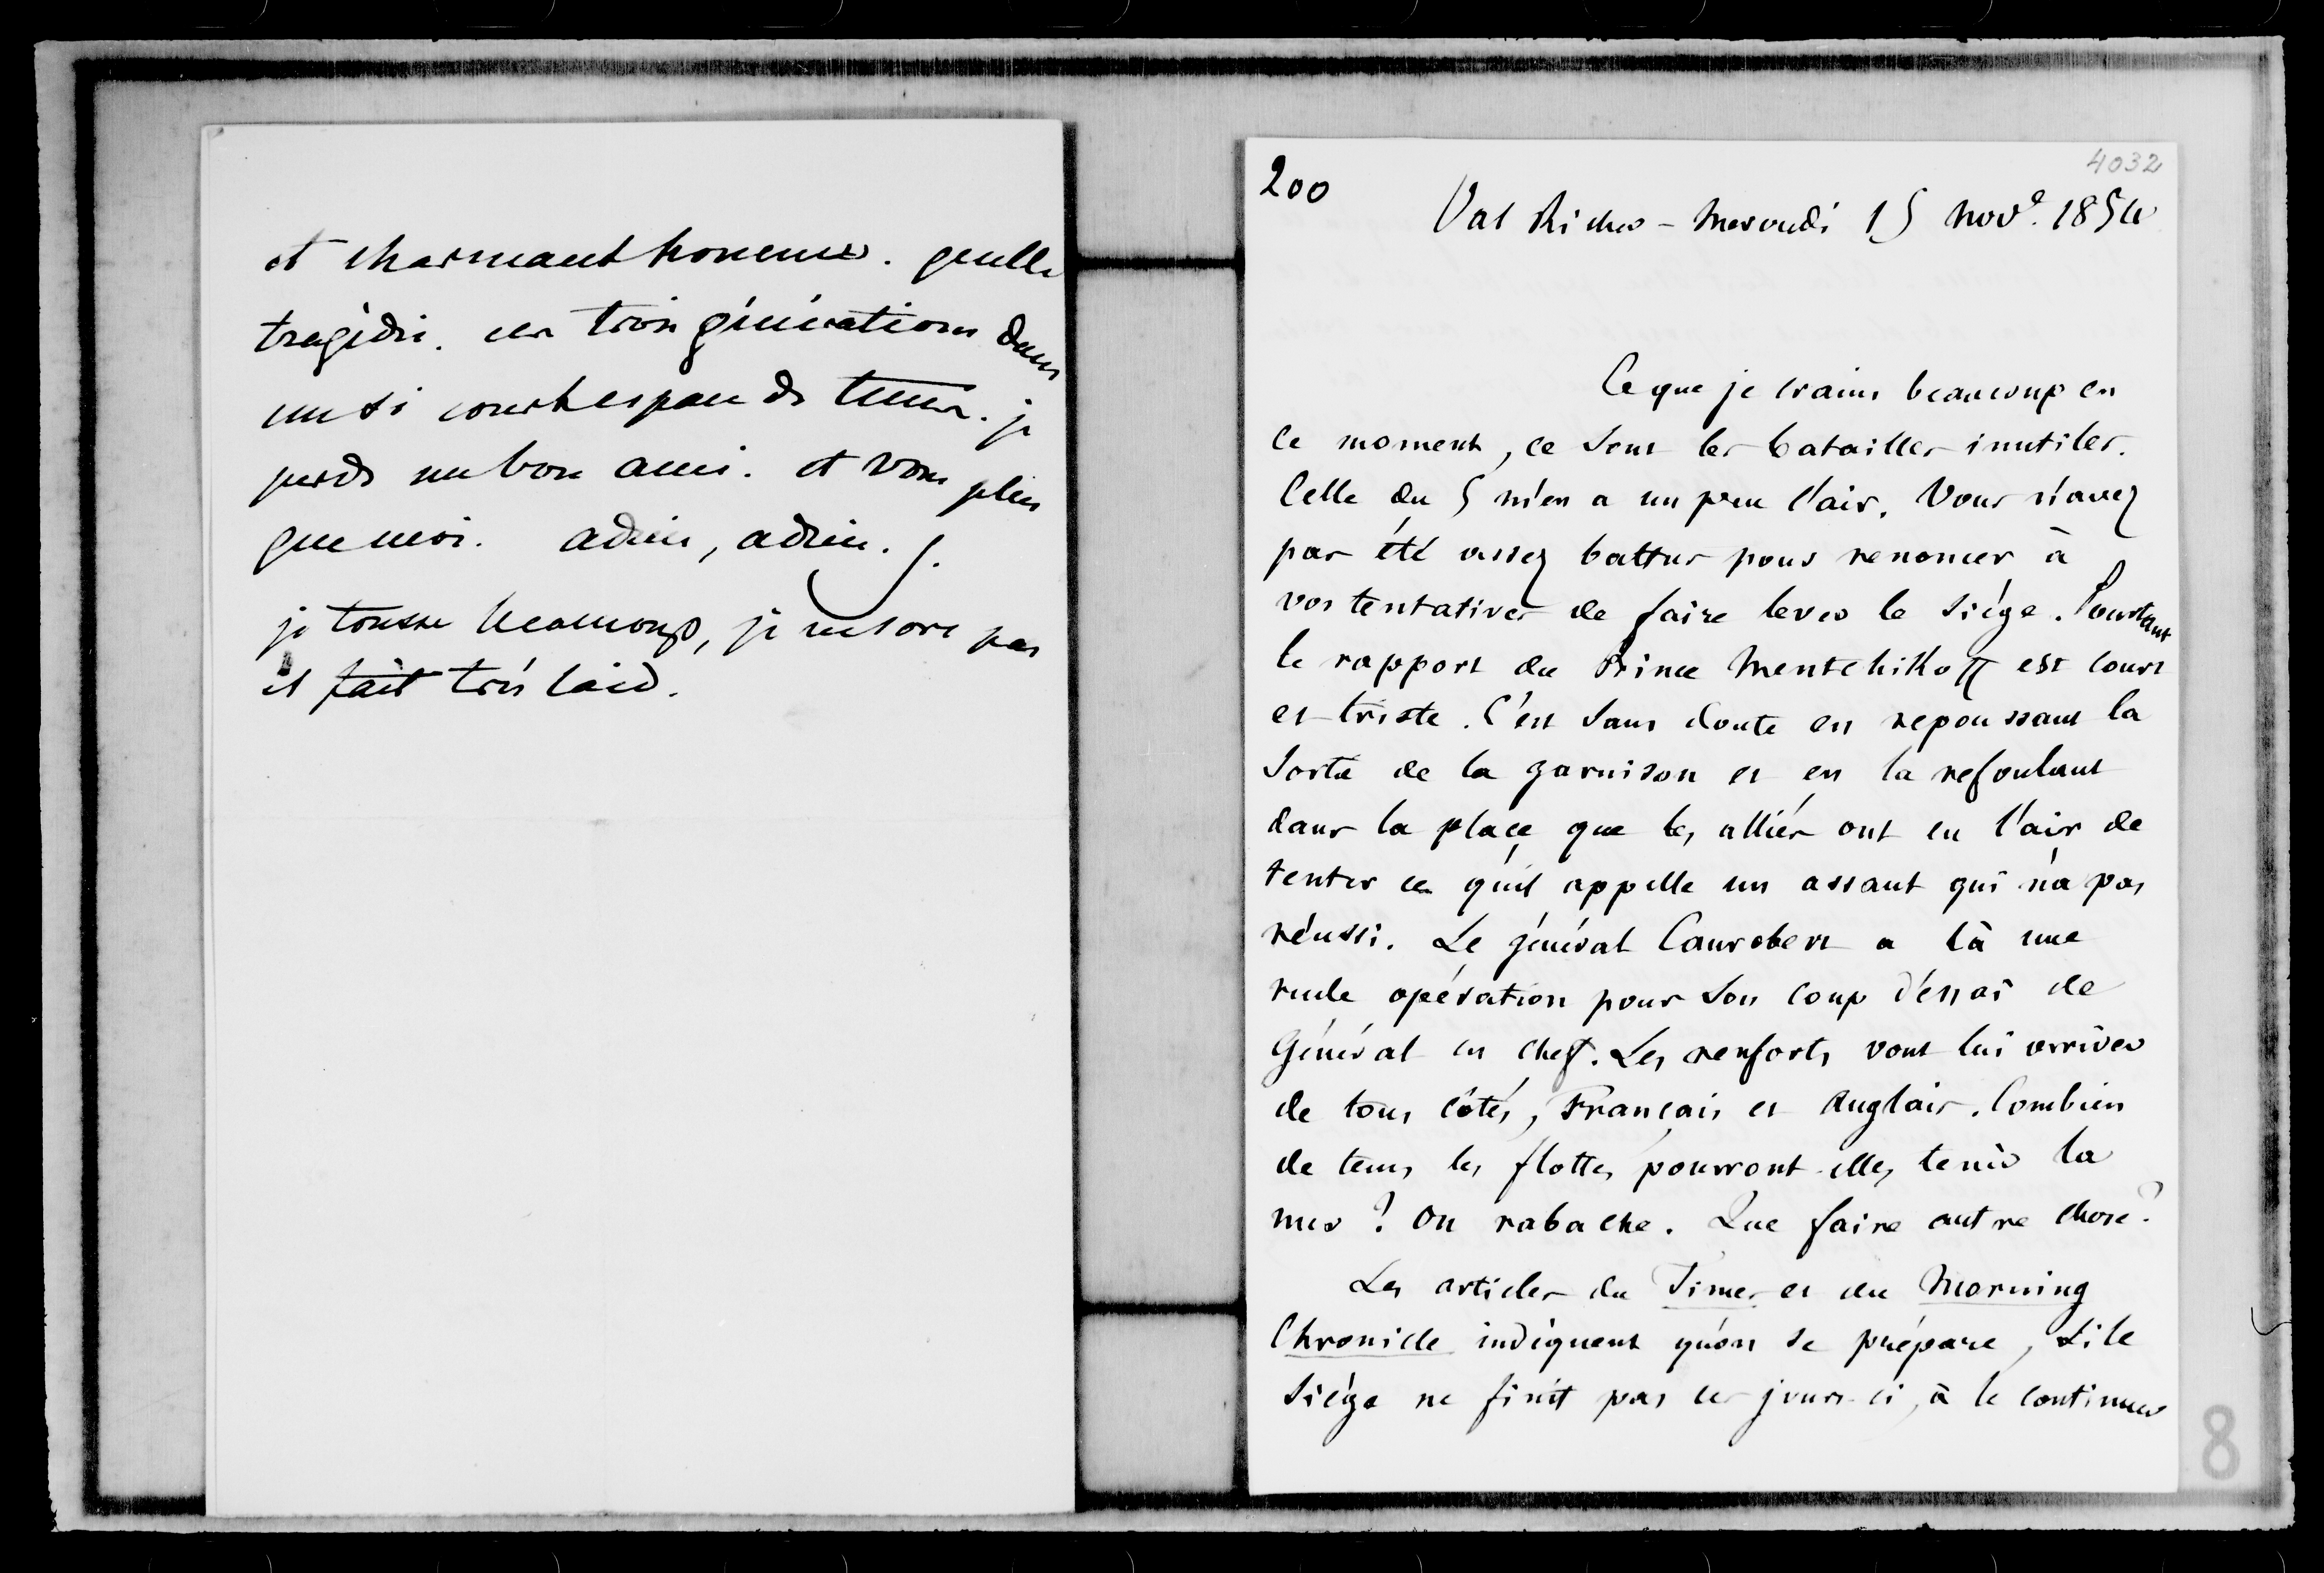 et charmant homme. quelle
tragédie. ces trois générations dans
un si court espace de tems. je
perds un bon ami. et vous plus
que moi. adieu, adieu.
je tousse beaucoup, je ne sors pas
il fait très laid.
200
4032
Val Richer - Mercredi 15 Nov.e 1854
Ce que je crains beaucoup en
ce moment, ce sont les batailles inutiles.
Celle du 5 m'en a un peu l'air. Vous n'avez
pas été assez battus pour renoncer à
vos tentatives de faire lever le siège. Pourtant
le rapport du Prince Mentchikoff est court
et triste. C'est sans doute en repoussant la
sortie de la garnison et en la refoulant
dans la place que les alliés ont eu l'air de
tenter ce qu'il appelle un assaut qui n'a pas
réussi. Le général Canrobert a là une
rude opération pour son coup d'essai de
Général en chef. Les renforts vont lui arriver
de tous côtés, Français et Anglais. Combien
de tems les flottes pourront-elles tenir la
mer ? On rabache. Que faire autre chose ?
Les articles du Times et du Morning
Chronicle indiquent qu'on se prépare, si le
siège ne finit pas ces jours-ci, à le continuer
8